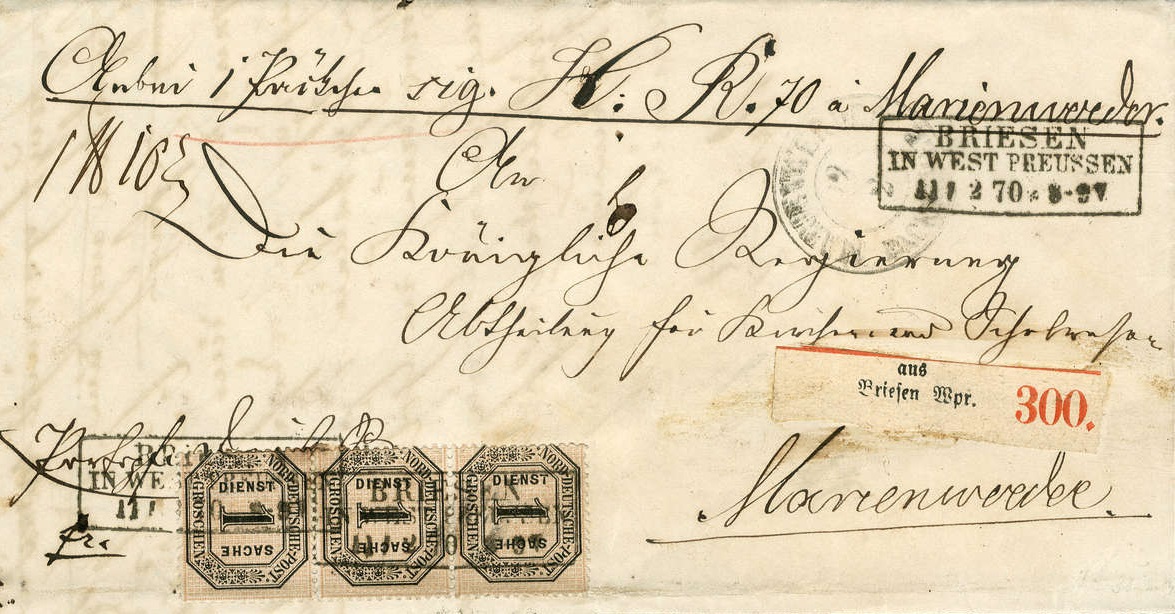 Anbei 1 Päckchen sig. H. K. R. 70 à Marienwerder.
BRIESEN
IN WEST PREUSSEN
11 2 70 8-9V
An
Die Königliche Regierung
Abtheilung für Kirchen und Schulwesen
aus
Briesen Wpr.
300.
Marienwerder.
BRIESEN
IN WEST
fr.
NORD-DEUTSCHE-POST
DIENST
1
SACHE
GROSCHEN
NORD-DEUTSCHE-POST
DIENST
1
SACHE
GROSCHEN
NORD-DEUTSCHE-POST
DIENST
1
SACHE
GROSCHEN
BRIESEN